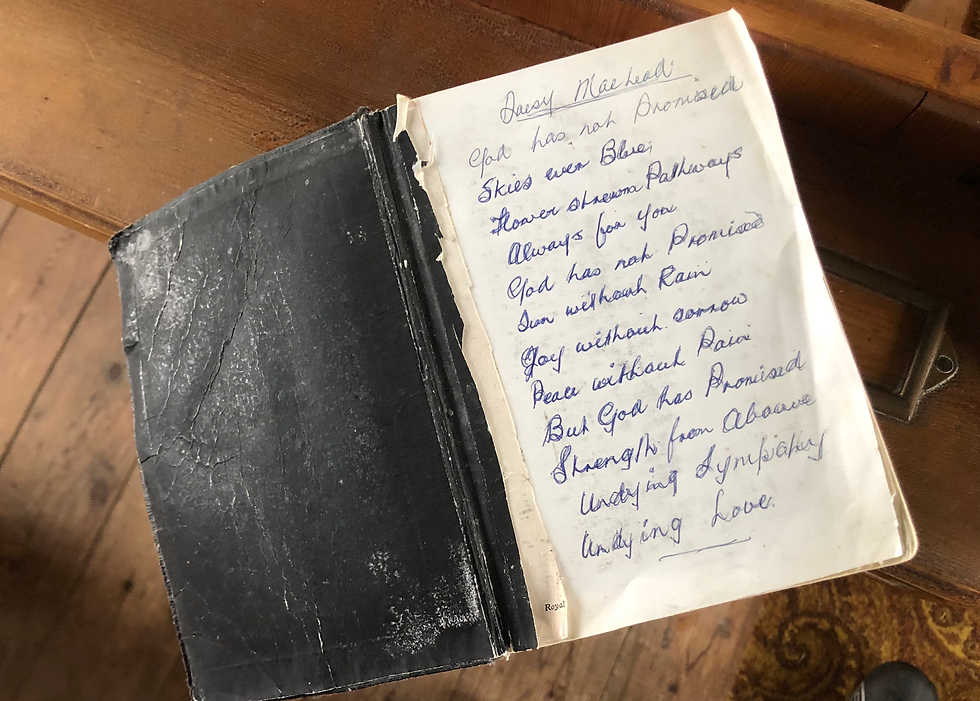 Daisy MacLeod.
God has not Promised
Skies ever Blue,
Flower strewn Pathways
Always for You
God has not Promised
Sun without Rain
Joy without sorrow
Peace without Pain
But God has Promised
Strength from Above
Undying Sympathy
Undying Love.
Royal